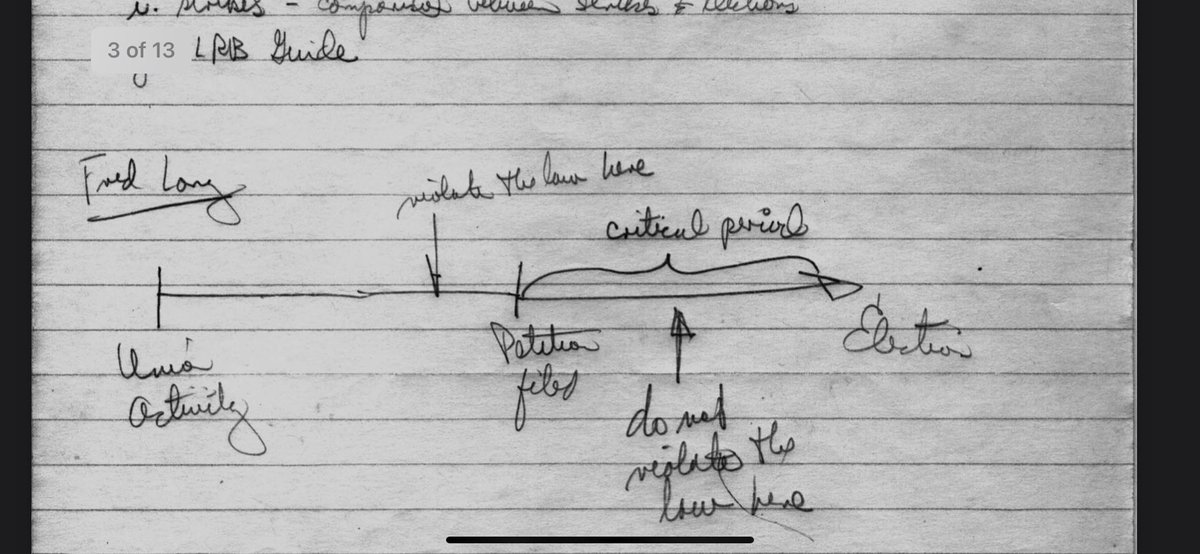 i. Strikes - Comparison between strikes & elections
3 of 13
LRB Guide
Fred Long
violate the law here
critical period
Union
Activity
Petition
filed
Election
do not
violate the
law here